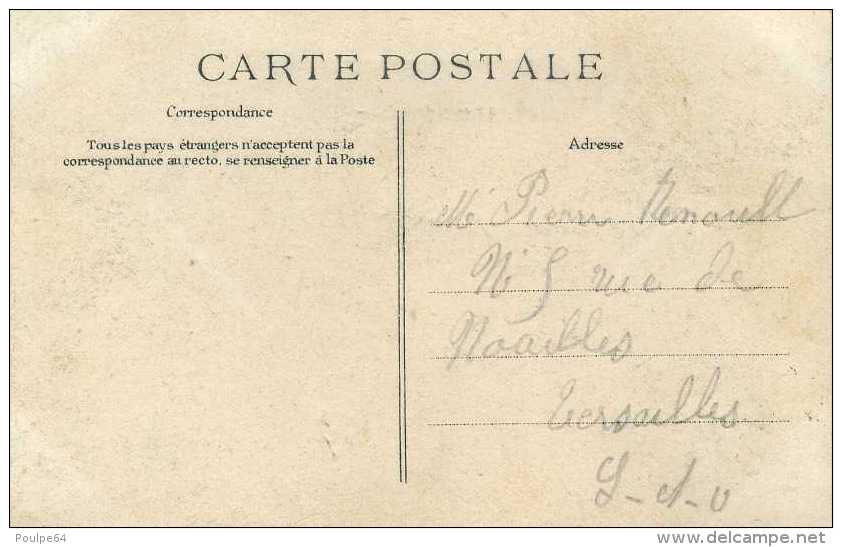 CARTE POSTALE
Correspondance
Tous les pays étrangers n'acceptent pas la
correspondance au recto, se renseigner à la Poste
Adresse
Mr Pierre Renault
N° 5 rue de
Noailles
Versailles
S-et-O
Poulpe64
www.delcampe.net